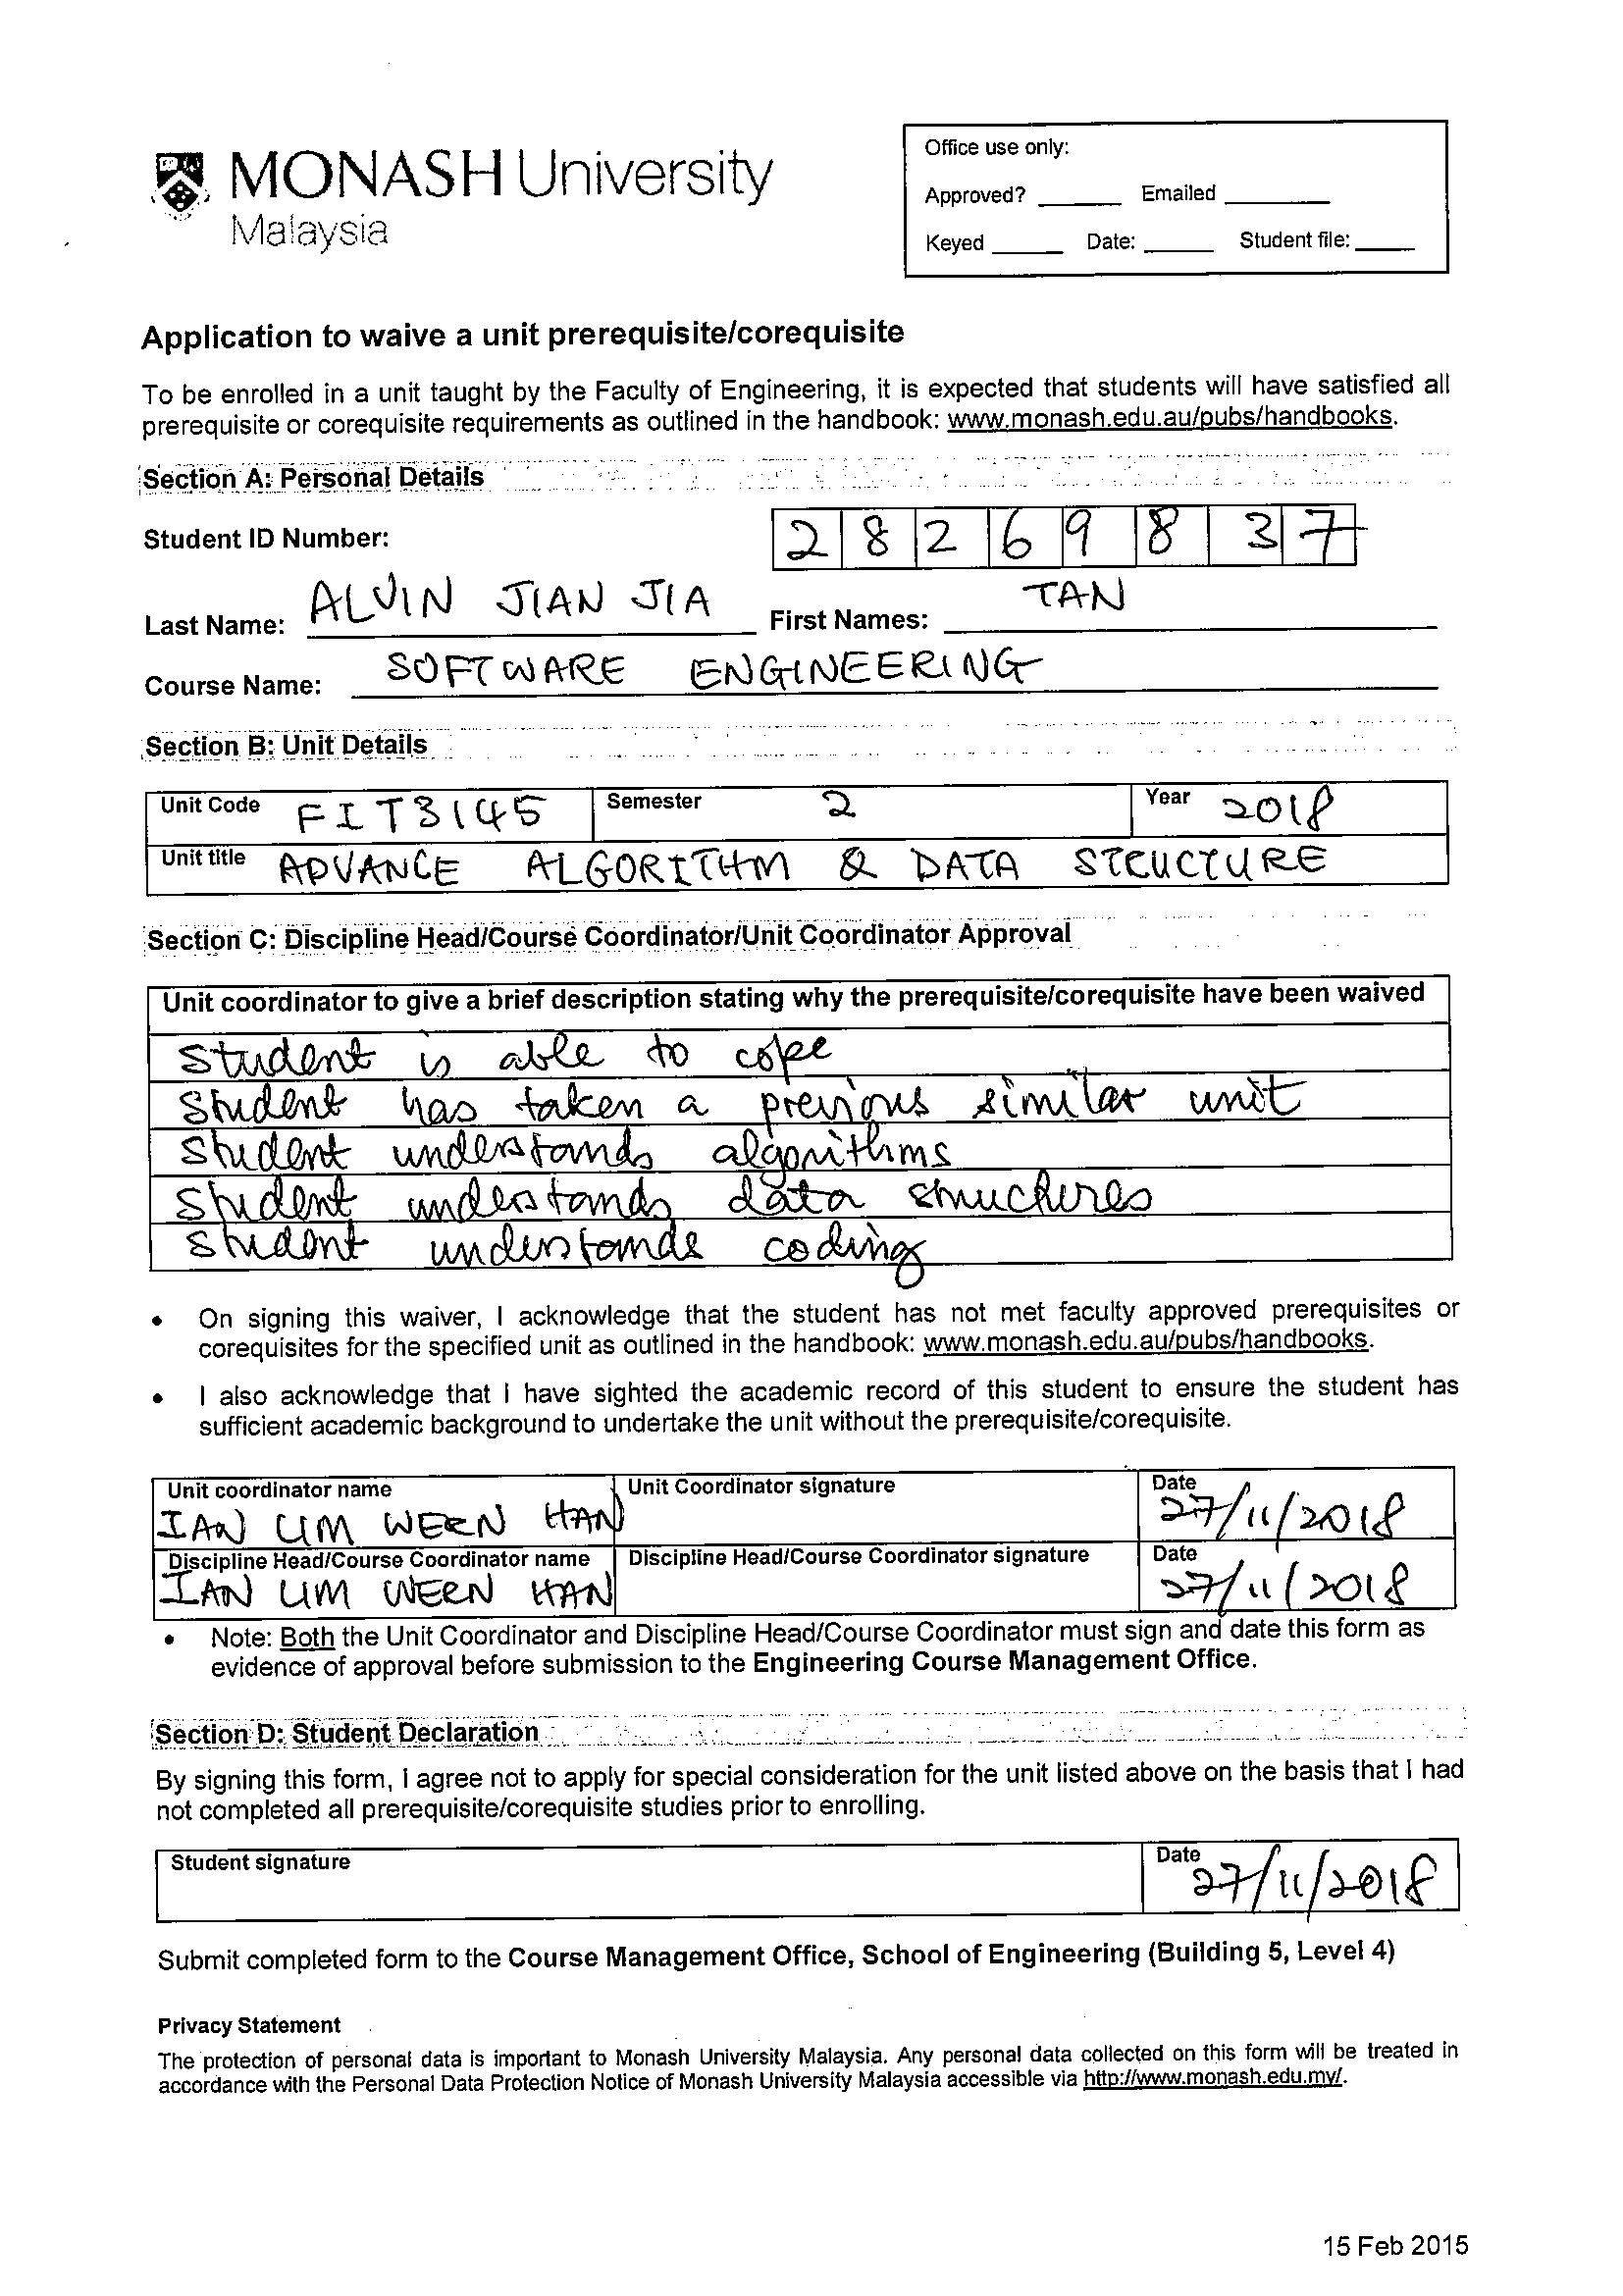 MONASH University
Malaysia
Office use only:
Approved? ______ Emailed ______
Keyed ______ Date: ______ Student file: ______
Application to waive a unit prerequisite/corequisite
To be enrolled in a unit taught by the Faculty of Engineering, it is expected that students will have satisfied all
prerequisite or corequisite requirements as outlined in the handbook: www.monash.edu.au/pubs/handbooks.
Section A: Personal Details
Student ID Number: 2 8 2 6 9 8 3 7
Last Name: ALVIN JIAN JIA First Names: TAN
Course Name: SOFTWARE ENGINEERING
Section B: Unit Details
Unit Code FIT3145 Semester 2 Year 2018
Unit title ADVANCE ALGORITHM & DATA STRUCTURE
Section C: Discipline Head/Course Coordinator/Unit Coordinator Approval
Unit coordinator to give a brief description stating why the prerequisite/corequisite have been waived
student is able to cope
student has taken a previous similar unit
student understands algorithms
student understands data structures
student understands coding
• On signing this waiver, I acknowledge that the student has not met faculty approved prerequisites or
corequisites for the specified unit as outlined in the handbook: www.monash.edu.au/pubs/handbooks.
• I also acknowledge that I have sighted the academic record of this student to ensure the student has
sufficient academic background to undertake the unit without the prerequisite/corequisite.
Unit coordinator name Unit Coordinator signature Date
IAN LIM WERN HAN 27/11/2018
Discipline Head/Course Coordinator name Discipline Head/Course Coordinator signature Date
IAN LIM WERN HAN 27/11/2018
• Note: Both the Unit Coordinator and Discipline Head/Course Coordinator must sign and date this form as
evidence of approval before submission to the Engineering Course Management Office.
Section D: Student Declaration
By signing this form, I agree not to apply for special consideration for the unit listed above on the basis that I had
not completed all prerequisite/corequisite studies prior to enrolling.
Student signature Date 27/11/2018
Submit completed form to the Course Management Office, School of Engineering (Building 5, Level 4)
Privacy Statement
The protection of personal data is important to Monash University Malaysia. Any personal data collected on this form will be treated in
accordance with the Personal Data Protection Notice of Monash University Malaysia accessible via http://www.monash.edu.my/.
15 Feb 2015